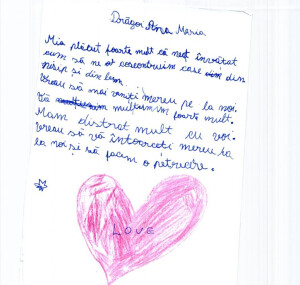 Dragoi Ana Maria
Mia plăcut foarte mult că neați învățat
cum să ne construim case din
nisip și din lemn
Vreau să mai veniți mereu pe la noi.
Vă mulțumim foarte mult.
Mam distrat mult cu voi.
Vreau să vă întoarceți mereu la
la noi și să facem o petrecere.
LOVE